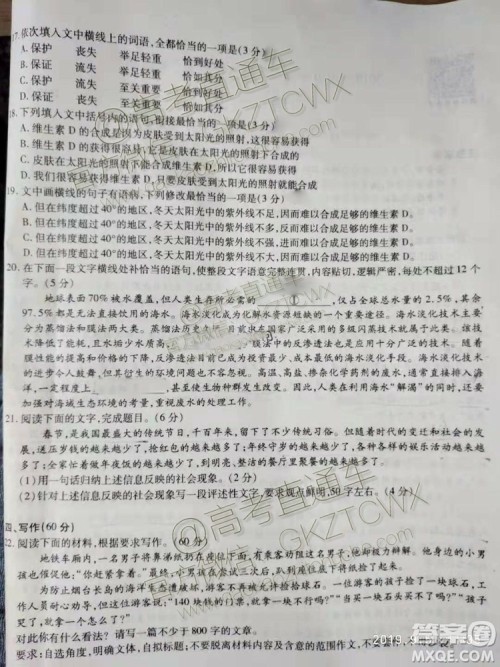 17.依次填入文中横线上的词语,全都恰当的一项是(3分)
A.保护 丧失 举足轻重 恰到好处
B.保证 流失 举足轻重 恰如其分
C.保护 流失 至关重要 恰到好处
D.保证 丧失 至关重要 恰如其分
18.下列填入文中括号内的语句,衔接最恰当的一项是(3分)
A.维生素D的合成是皮肤受到太阳光的照射,这很容易获得
B.维生素D的获得很容易,它是皮肤在太阳光的照射下合成的
C.皮肤在太阳光的照射下能合成维生素D,所以这很容易获得
D.我们很容易获得维生素D,只要皮肤受到太阳光的照射就能合成
19.文中画横线的句子有语病,下列修改最恰当的一项是(3分)
A.但在纬度超过40°的地区,冬天太阳光中的紫外线不足,因而难以合成足够的维生素D。
B.但在纬度超过40°的地区,冬天太阳光中的紫外线不多,因而难以合成足够的维生素D。
C.但在纬度超过40°的地区,冬天太阳光中的紫外线不强,进而难以合成足够的维生素D。
D.但在纬度超过40°的地区,冬天太阳光中的紫外线不足,反而难以合成足够的维生素D。
20.在下面一段文字横线处补恰当的语句,使整段文字语意完整连贯,内容贴切,逻辑严密,每处不超过12个
字。(5分)
地球表面70%被水覆盖,但人类生存所必需的 ① ,仅占全球总水量的2.5%,其余
97.5%都是无法直接饮用的海水。海水淡化成为化解水资源短缺的一个重要途径。海水淡化技术主要分
为蒸馏法和膜法两大类。蒸馏法历史悠久,目前以广泛采用的多级闪蒸技术就属于此类。该技
术降低了能耗,且水垢少水质高。 膜法中的反渗透法也是当下应用十分广泛的技术。随着
膜性能的提高和价格的下降,反渗透法已经成为最受欢迎、成本最低的海水淡化手段。海水淡化技术
的进步令人鼓舞,但其伴生的环境问题也不容忽视。高温、高盐、掺杂化学药剂的废水,直接排入海
洋,一定程度上 ,甚至使生物种群发生改变。因此,人类在利用海水“解渴”的同时,还要
加强对海域生态环境的考量,重视废水的处理工作。
21.阅读下面的文字,完成题目。(6分)
春节,是我国最盛大的传统节日,千百年来,留下了不少传统习俗。但随着时代的变迁和社会的发
展,送压岁钱的越来越少了,抢红包的越来越多了;年终守岁的越来越少了,各种各样的娱乐活动越来越多
了;全家忙着做年夜饭的越来越少了,到明亮、整洁的餐厅里聚餐的越来越多了。
(1)用一句话归纳上述信息反映的社会现象。(2分)
(2)针对上述信息反映的社会现象写一段评述性文字,要求观点鲜明,50字左右。(4分)
四、写作(60分)
22.阅读下面的材料,根据要求写作。(60分)
地铁车厢内,一名男子将鼻涕纸扔在座位下面,有乘客劝阻这名男子,他却极力辩解。他身后的小男
孩见状,捡起纸巾说:“你别吵了,我捡起来了。”最终,小男孩在尝试三次后,趴到座位下将纸巾捡起。
为防止烟台长岛的海洋生态遭破坏,游客不再被允许捡拾球石。一位游客的孩子捡了一块球石,
工作人员耐心劝导,但这位游客放言:“140块钱的门票,就是拿一个怎么了?”他一吼,孩子吓得哇哇大
哭了,就拿一个怎么了?”
对此你有什么看法?请写一篇不少于800字的文章。
要求:自选角度,明确文体,自拟标题;不要脱离材料内容及含意的范围作文,不要套作,不得抄袭。
高考直通车
GKZTCWX
@高考直通车
GKZTCWX
2019.9
答案圈
MXQE.COM